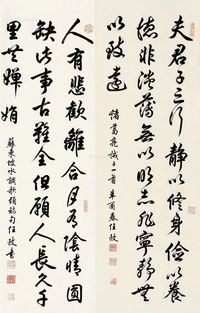 夫君子之行靜以修身儉以養
德非淡薄無以明志非寧靜無
以致遠
諸葛亮誡子一首辛酉春任政
人有悲歡離合月有陰晴圓
缺此事古難全但願人長久千
里共嬋娟
蘇東坡水調歌頭詞句任政書